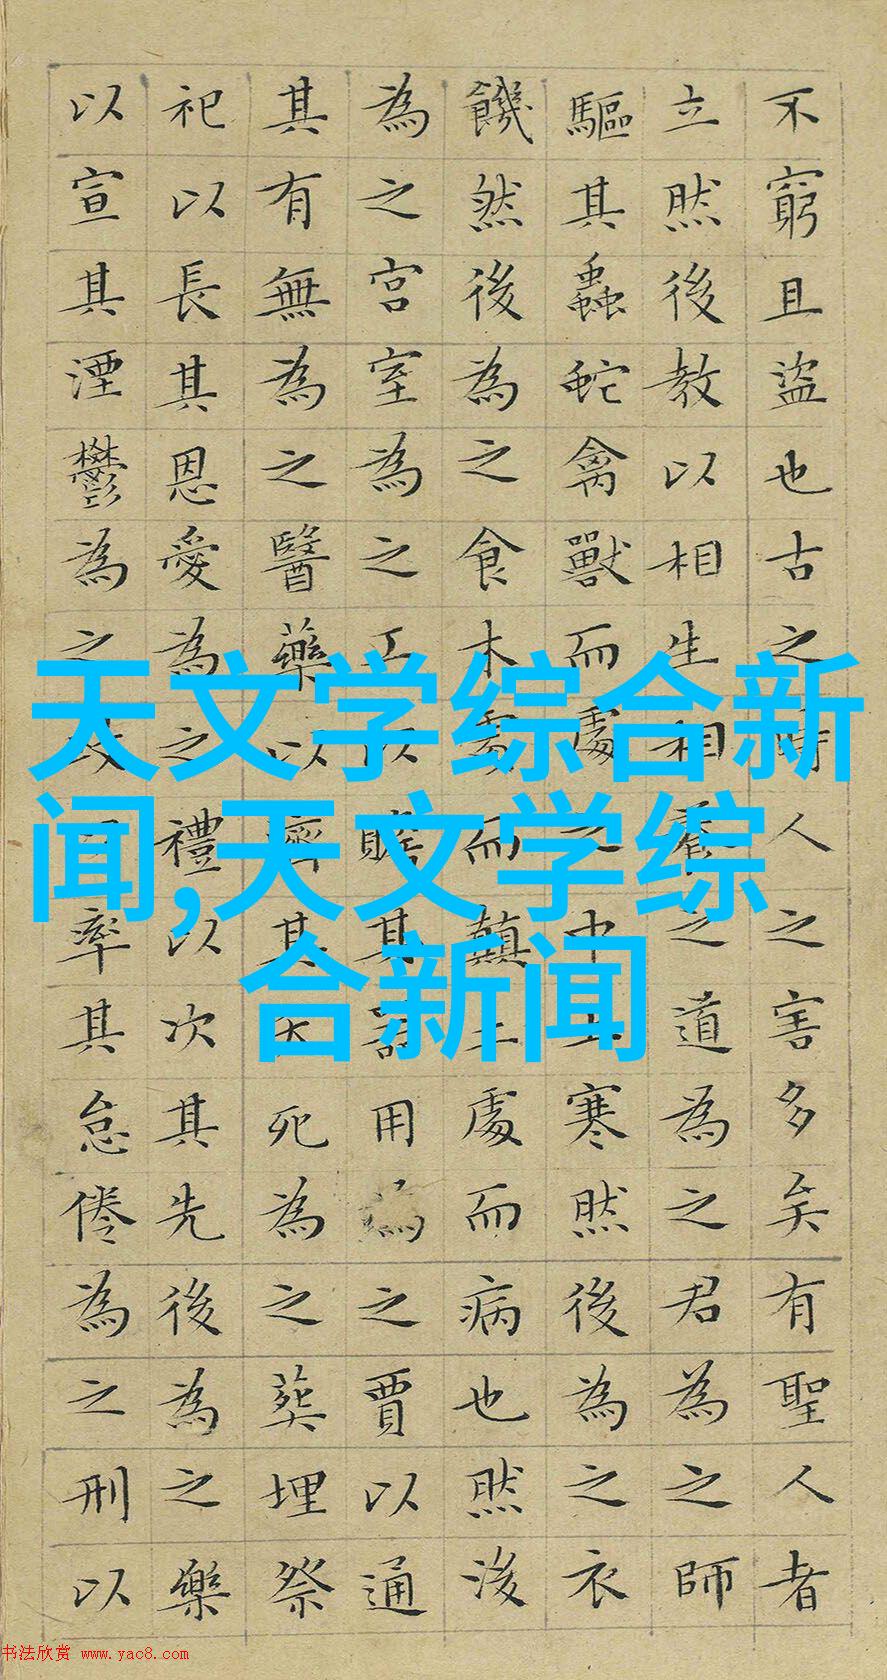 不窮且盜也古之時人之害多矣有聖人者
立然後教以相生相養之道為之君為之師
驅其蟲蛇禽獸而處之中土寒然後為之衣
饑然後為之食木處而顛土處而病也然後
為之宮室為之工以贍其器用為之賈以通
其有無為之醫藥以濟其夭死為之葬埋祭
祀以長其恩愛為之禮以次其先後為之樂
以宣其湮鬱為之政以率其怠倦為之刑以
天文学综合新
闻,天文学综
合新闻
书法欣赏 www.yac8.com